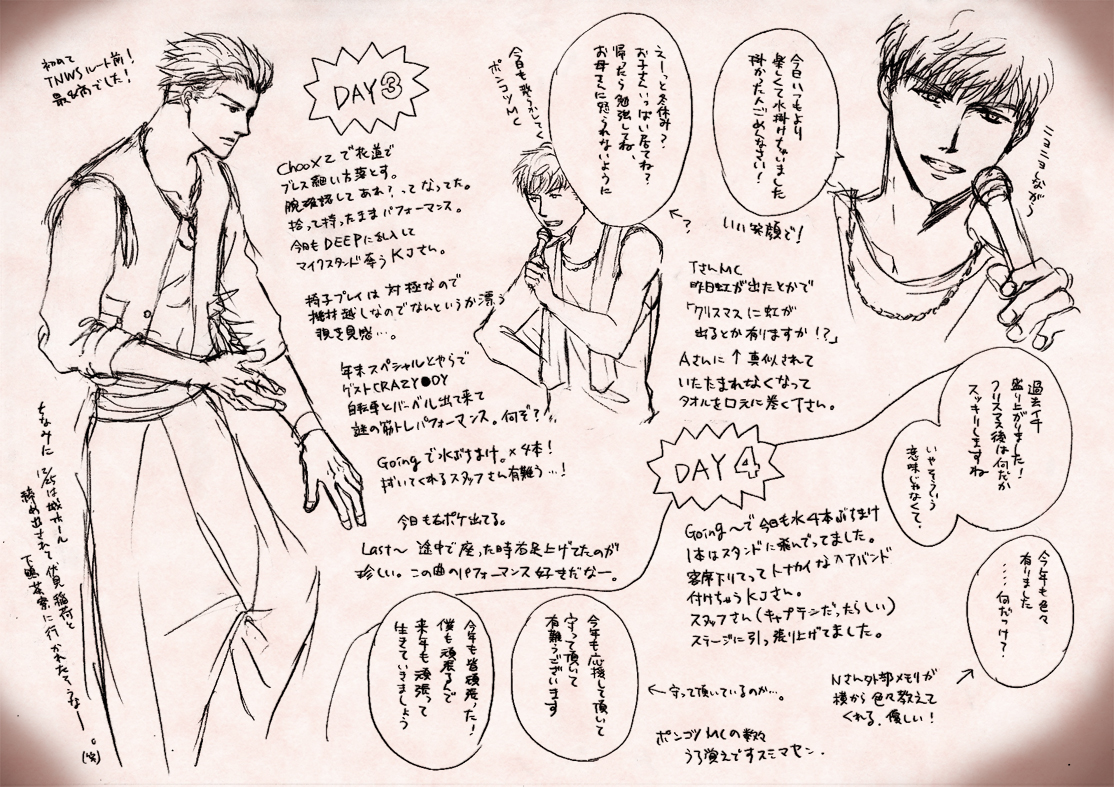 初めて
TNWSルート前!
最高でした!
DAY3
ChooXZで花道で
ブレス細い方落とす。
腕確認してあれ?ってなってた。
拾って持ったままパフォーマンス。
今日もDEEPに乱入して
マイクスタンド奪うKJさん。
椅子プレイは対極なので
機材越しなのでなんというか漂う
覗き見感…。
年末スペシャルとやらで
ゲストCRAZY●OY
自転車とバーベル出て来て
謎の筋トレパフォーマンス。何ぞ?
Goingで水ぶちまけ。×4本!
拭いてくれるスタッフさん有難う…!
今日も右ポケ出てる。
Last〜 途中で座った時右足上げてたのが
珍しい。この曲のパフォーマンス好きだなー。
ちなみに12/25は城ホール
締め出されて伏見稲荷と
下鴨茶寮に行かれたそうなー。
(笑)
今日も
ポンコツMC
えーっと冬休み?
お子さんいっぱい居てね?
帰ったら勉強してね、
お母さんに怒られないように
←?
今日いつもより
楽しくて水掛けちゃいました
掛かった人ごめんなさい!
いい笑顔で!
ニヨニヨしながら
TさんMC
昨日虹が出たとかで
「クリスマスに虹が
出るとか有りますか!?」
Aさんに↑真似されて
いたたまれなくなって
タオルを口元に巻くTさん。
DAY4
過去イチ
盛り上がりました!
クリスマス後は何だか
スッキリしますね
いやそういう
意味じゃなくて、
Going〜で今日も水4本ぶちまけ
1本はスタンドに飛んでってました。
客席下りてってトナカイなヘアバンド
付けちゃうKJさん。
スタッフさん(キャプテンだったらしい)
ステージに引っ張り上げてました。
今年も色々
有りました
……何だっけ?
Nさん外部メモリが
横から色々教えて
くれる。優しい!
今年も応援して頂いて
守って頂いて
有難うございます
←守って頂いているのか…。
今年も皆頑張った!
僕も頑張るんで
来年も頑張って
生きていきましょう
ポンコツMCの数々
うろ覚えですスミマセン.